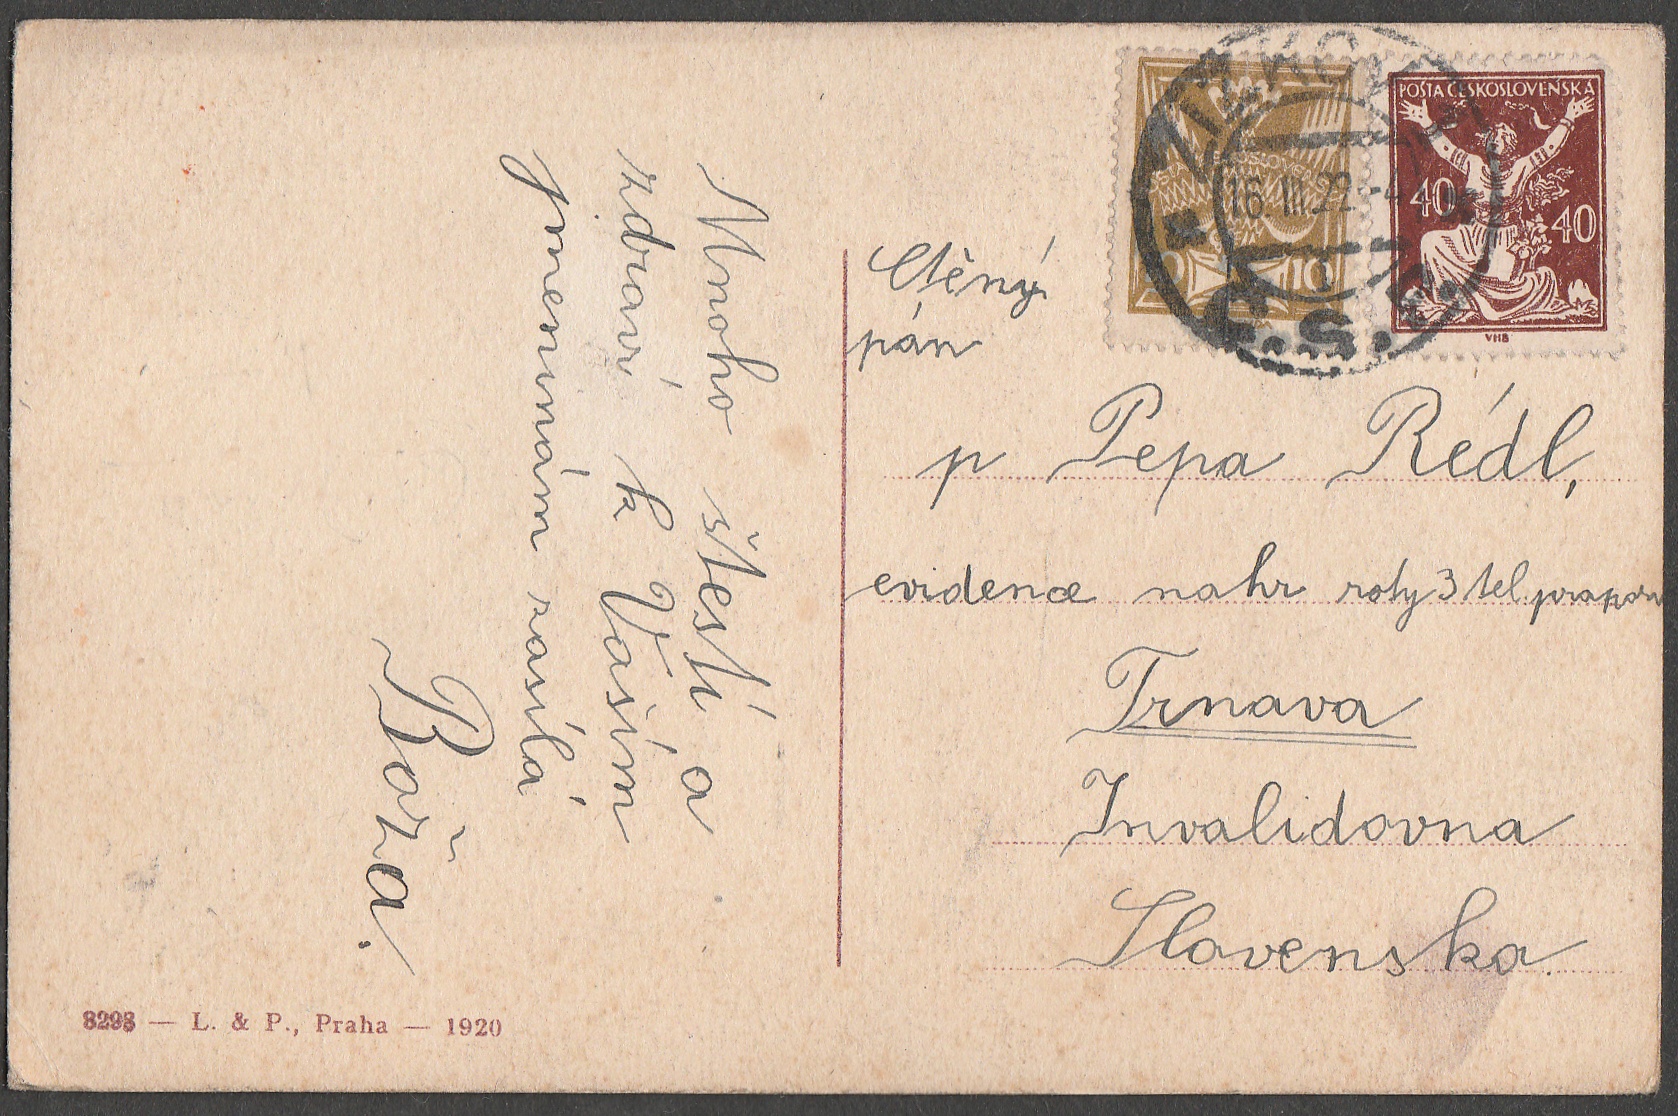 Mnoho štestí a
zdraví k Vaším
jmeninám zasílá
Boža.
8298 — L. & P., Praha — 1920
POŠTA ČESKOSLOVENSKÁ
40 40
VHB
10
16 III 22
Č.S.P.
Ctěný
pán
p Pepa Rédl,
evidence nahr roty 3 tel. prapor
Trnava
Invalidovna
Slovenska.